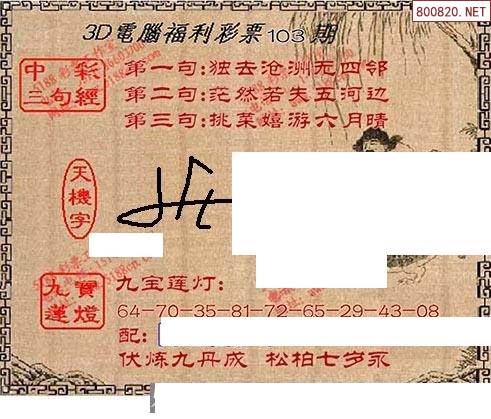 800820.NET
3D電腦福利彩票103期
中彩
三句經
第一句:独去沧洲无四邻
第二句:茫然若失五河边
第三句:挑菜嬉游六月晴
天機字
九寶
蓮燈
九宝莲灯:
64-70-35-81-72-65-29-43-08
配:
伏炼九丹成 松柏七岁永